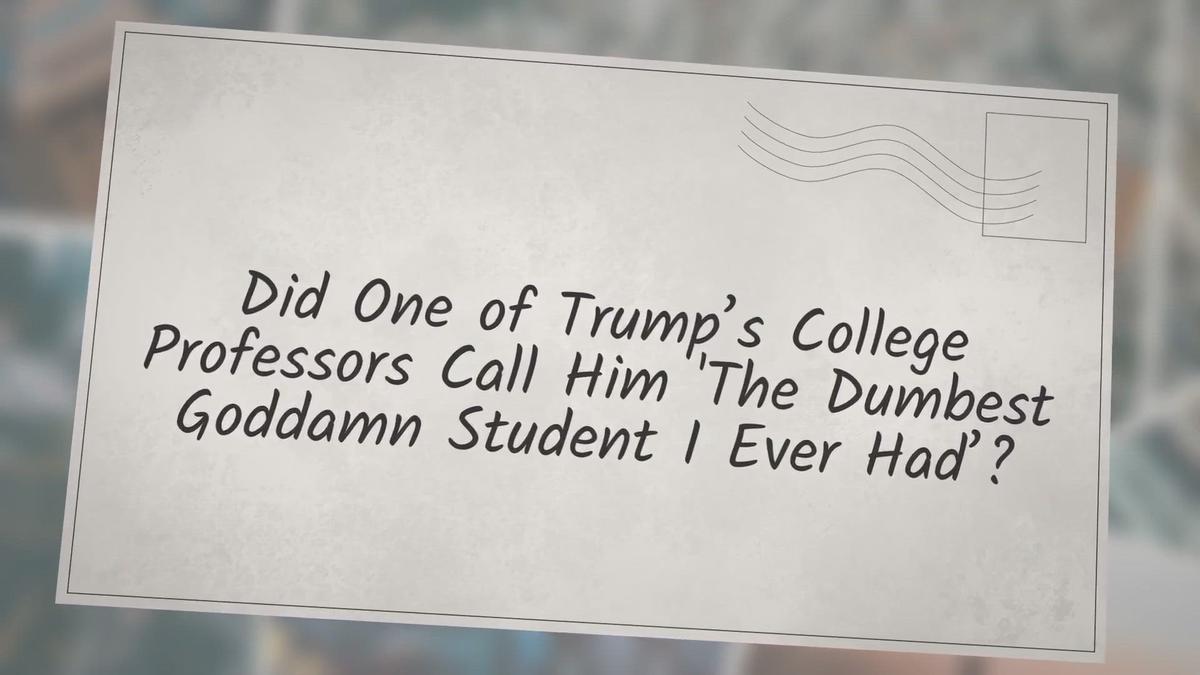 Did One of Trump’s College
Professors Call Him 'The Dumbest
Goddamn Student I Ever Had’?